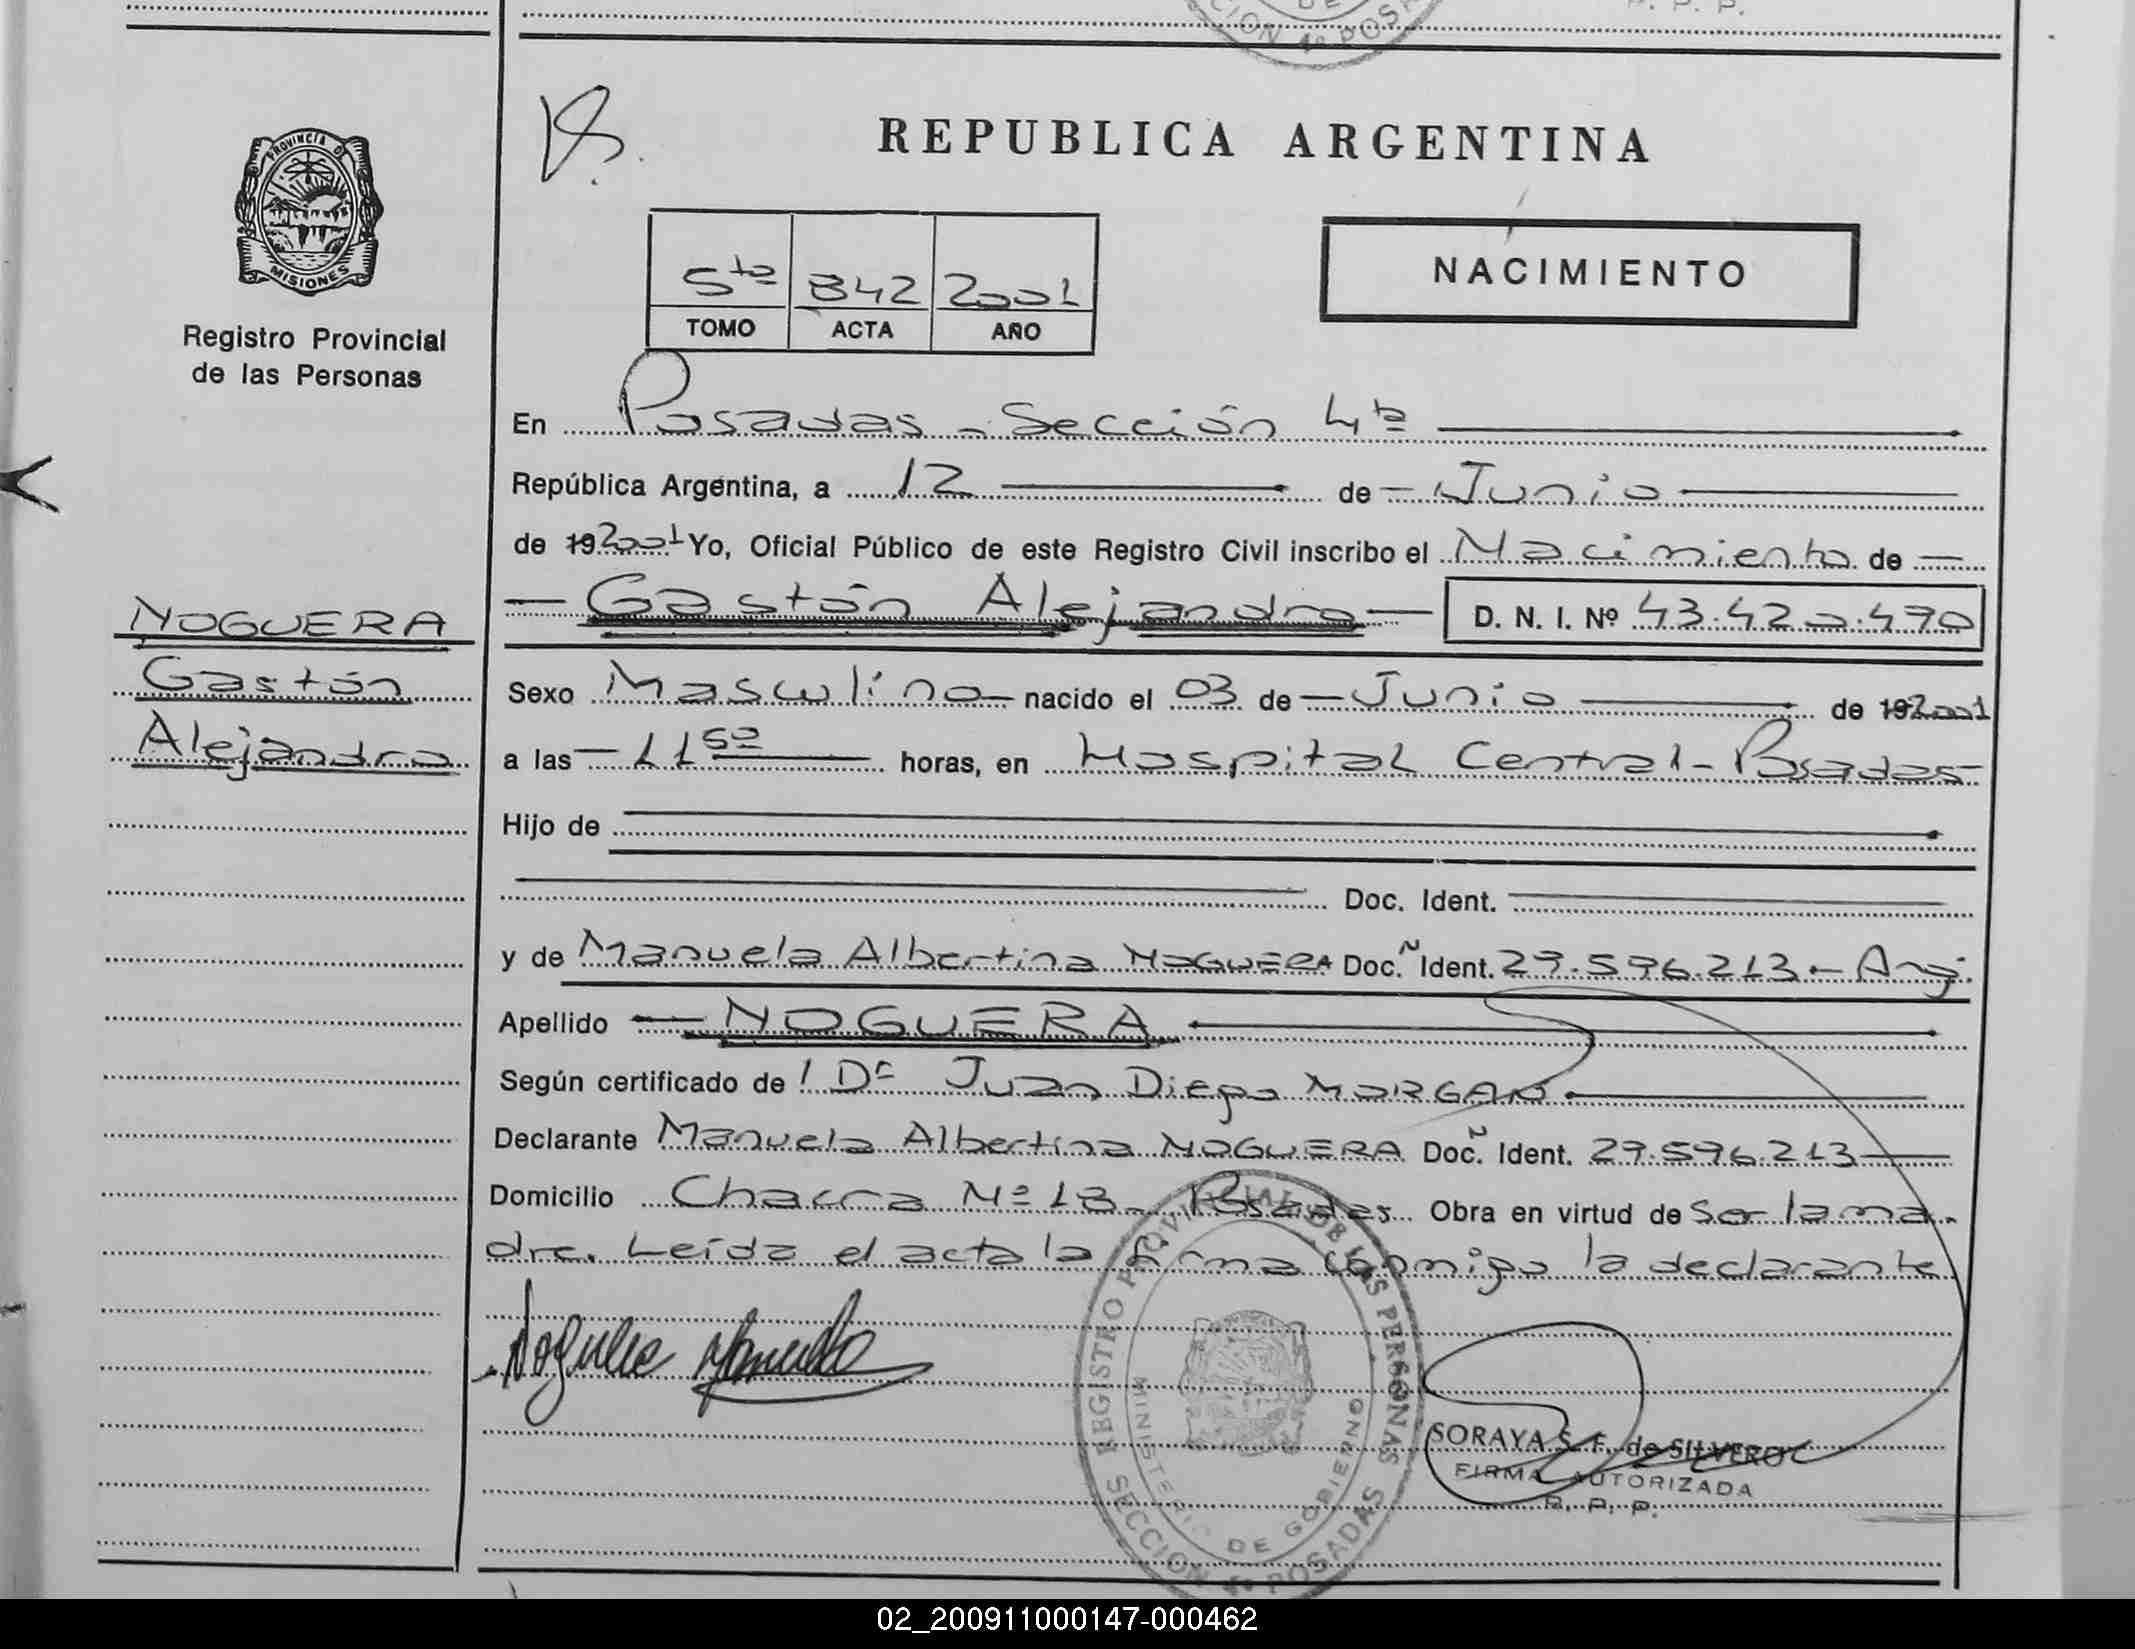 CION 4º POS
DE
R. P. P.
PROVINCIA D
MISIONES
Registro Provincial
de las Personas
NOGUERA
Gastón
Alejandro
REPUBLICA ARGENTINA
5ta 842 2001
TOMO ACTA AÑO
NACIMIENTO
En Posadas - Sección 4ta
República Argentina, a 12 de Junio
de 19 2001 Yo, Oficial Público de este Registro Civil inscribo el Nacimiento de
Gastón Alejandro D. N. I. Nº 43.420.470
Sexo Masculino nacido el 03 de Junio de 19 2001
a las 11 50 horas, en Hospital Central - Posadas
Hijo de
Doc. Ident.
y de Manuela Albertina NOGUERA Doc. Ident. 29.596.213 - Arg.
Apellido NOGUERA
Según certificado de Dr Juan Diego MORGAN
Declarante Manuela Albertina NOGUERA Doc. Ident. 29.596.213
Domicilio Chacra Nº 18 - Posadas Obra en virtud de Ser la ma-
dre. Leída el acta la firma conmigo la declarante
Noguera Manuela
REGISTRO PROVINCIAL DE LAS PERSONAS
MINISTERIO DE GOBIERNO
SECCION 4º POSADAS
SORAYA S. F. de SILVERO
FIRMA AUTORIZADA
R. P. P.
02_200911000147-000462